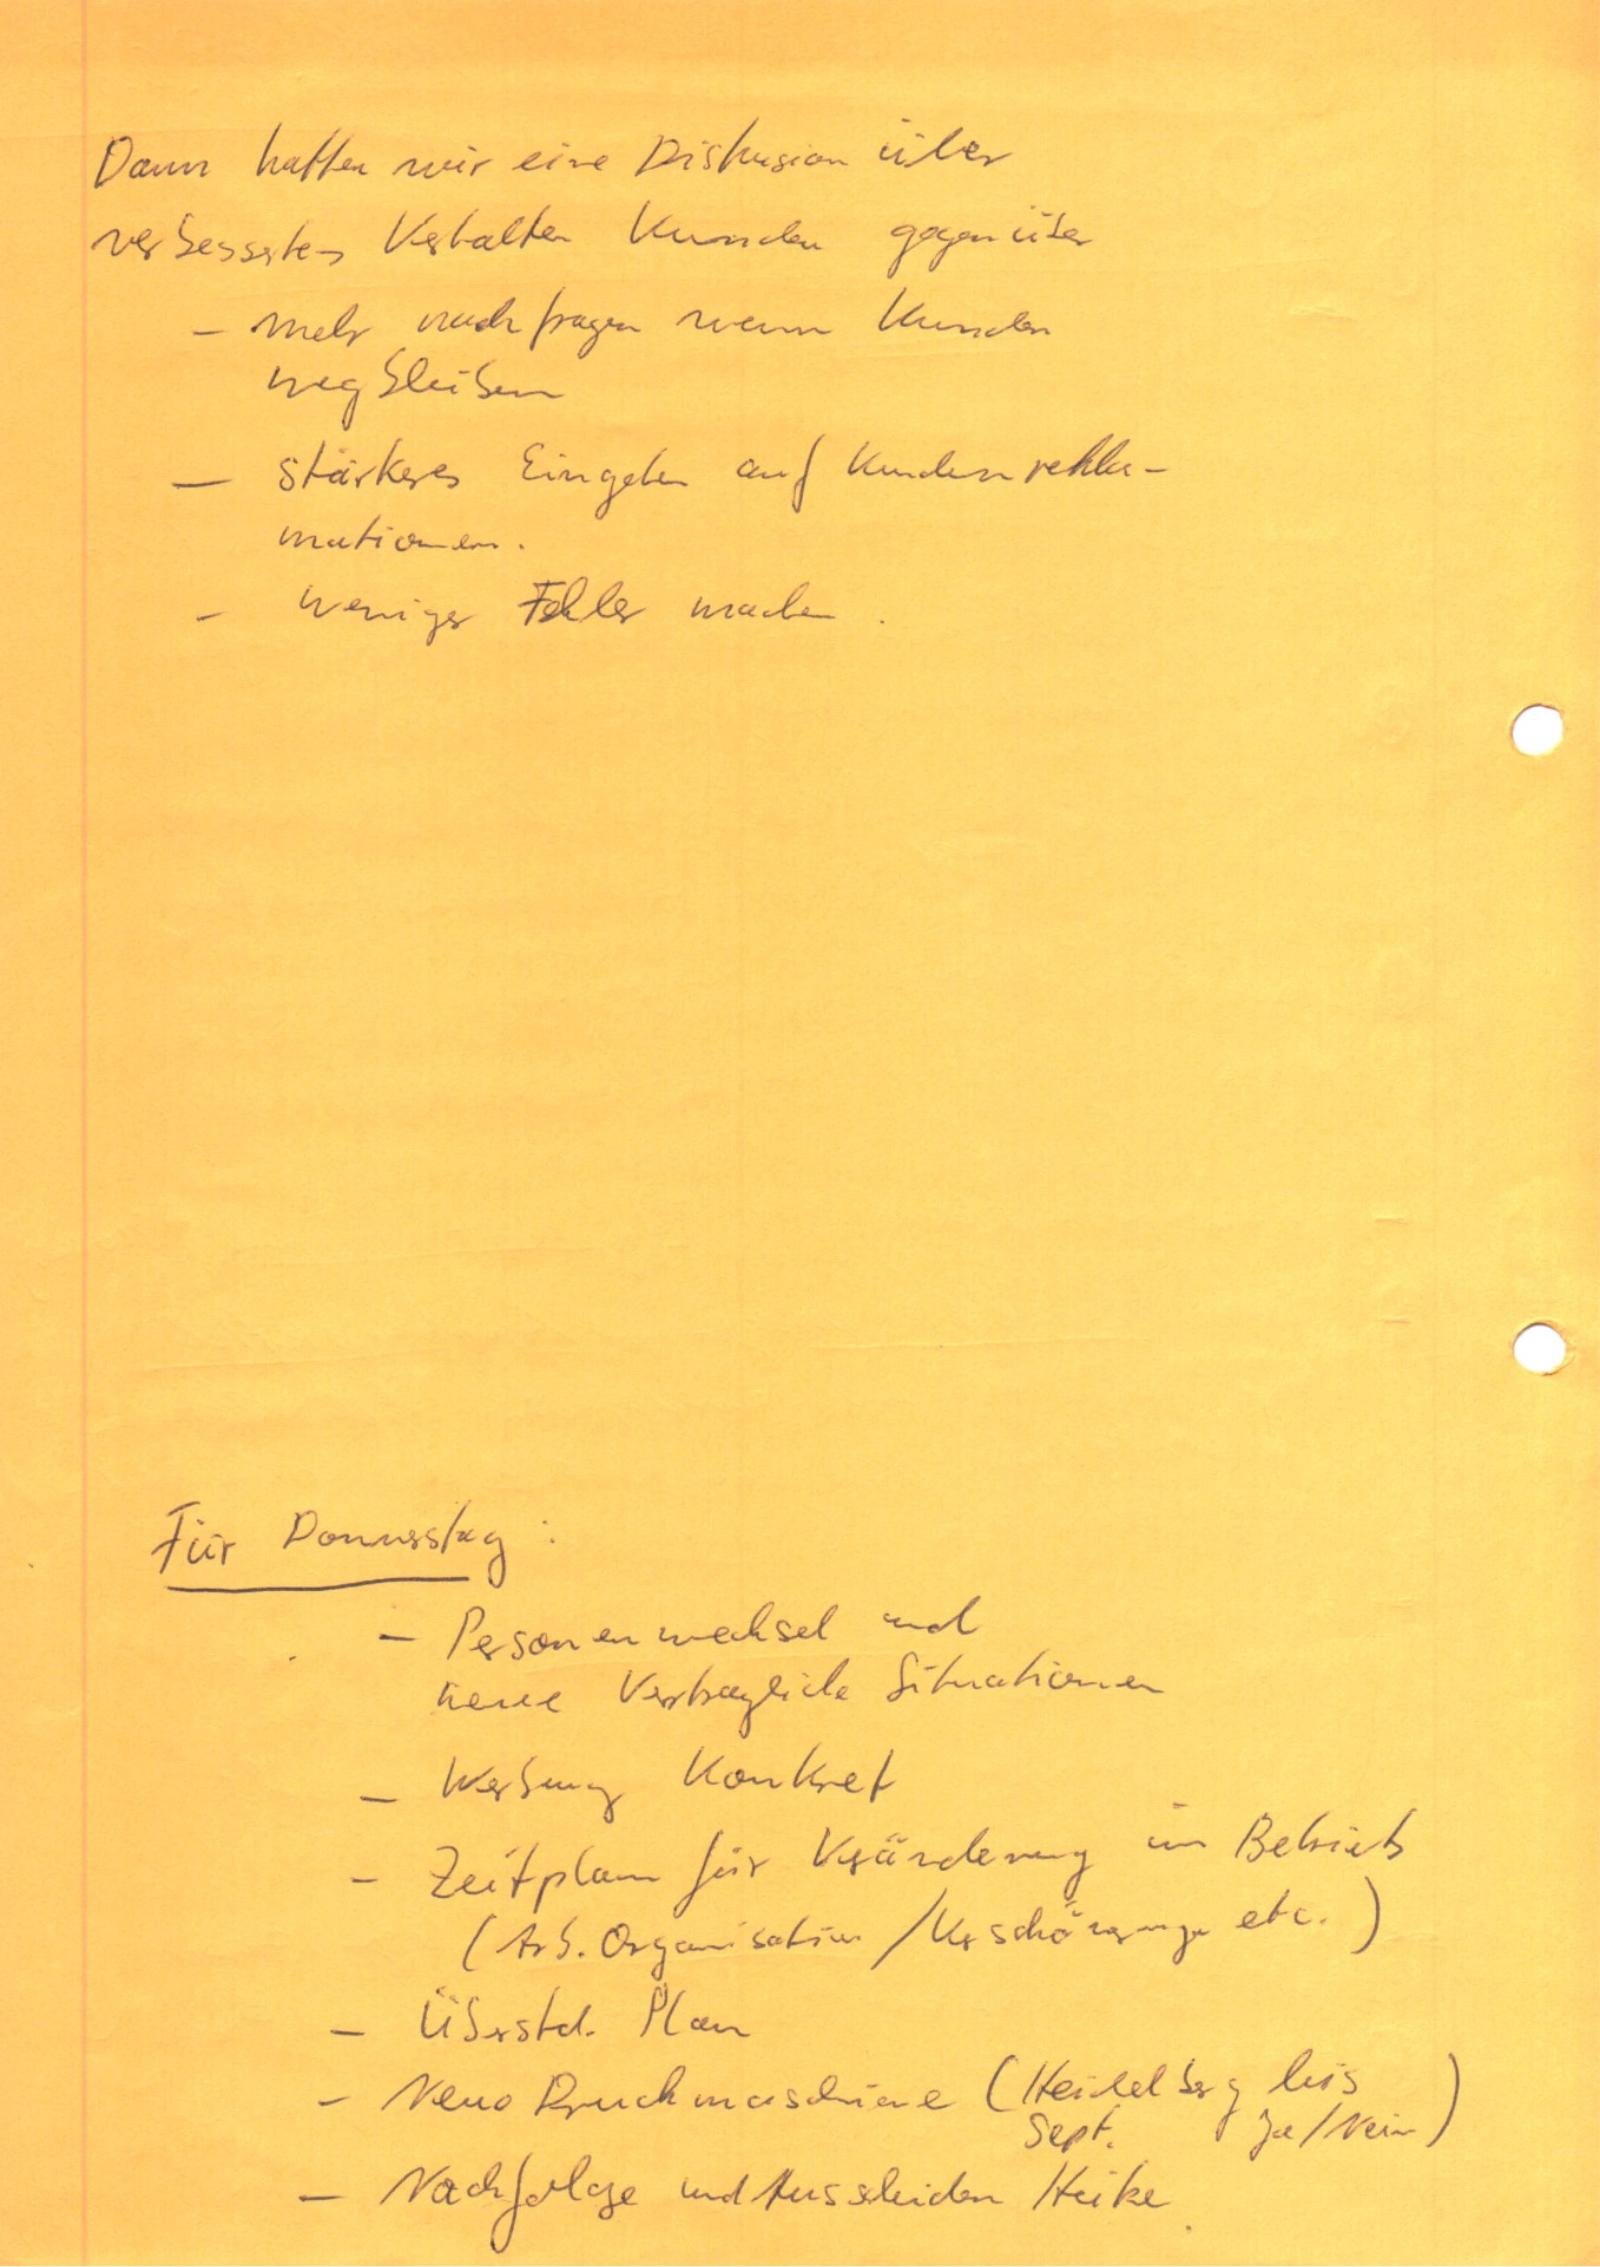 Dann hatten wir eine Diskusion über
verbessertes Verhalten Kunden gegenüber
- mehr nachfragen wenn Kunden
wegbleiben
- stärkeres Eingehen auf Kundenrekla-
mationen.
- weniger Fehler machen.
Für Donnerstag:
- Personenwechsel und
neue Vertragliche Situationen
- Werbung Konkret
- Zeitplan für Veränderung im Betrieb
(Arb. Organisation / Verschönerung etc.)
- Überstd. Plan
- Neue Druckmaschine (Heidelberg bis
Sept. Ja/Nein)
- Nachfolge und Ausscheiden Heike